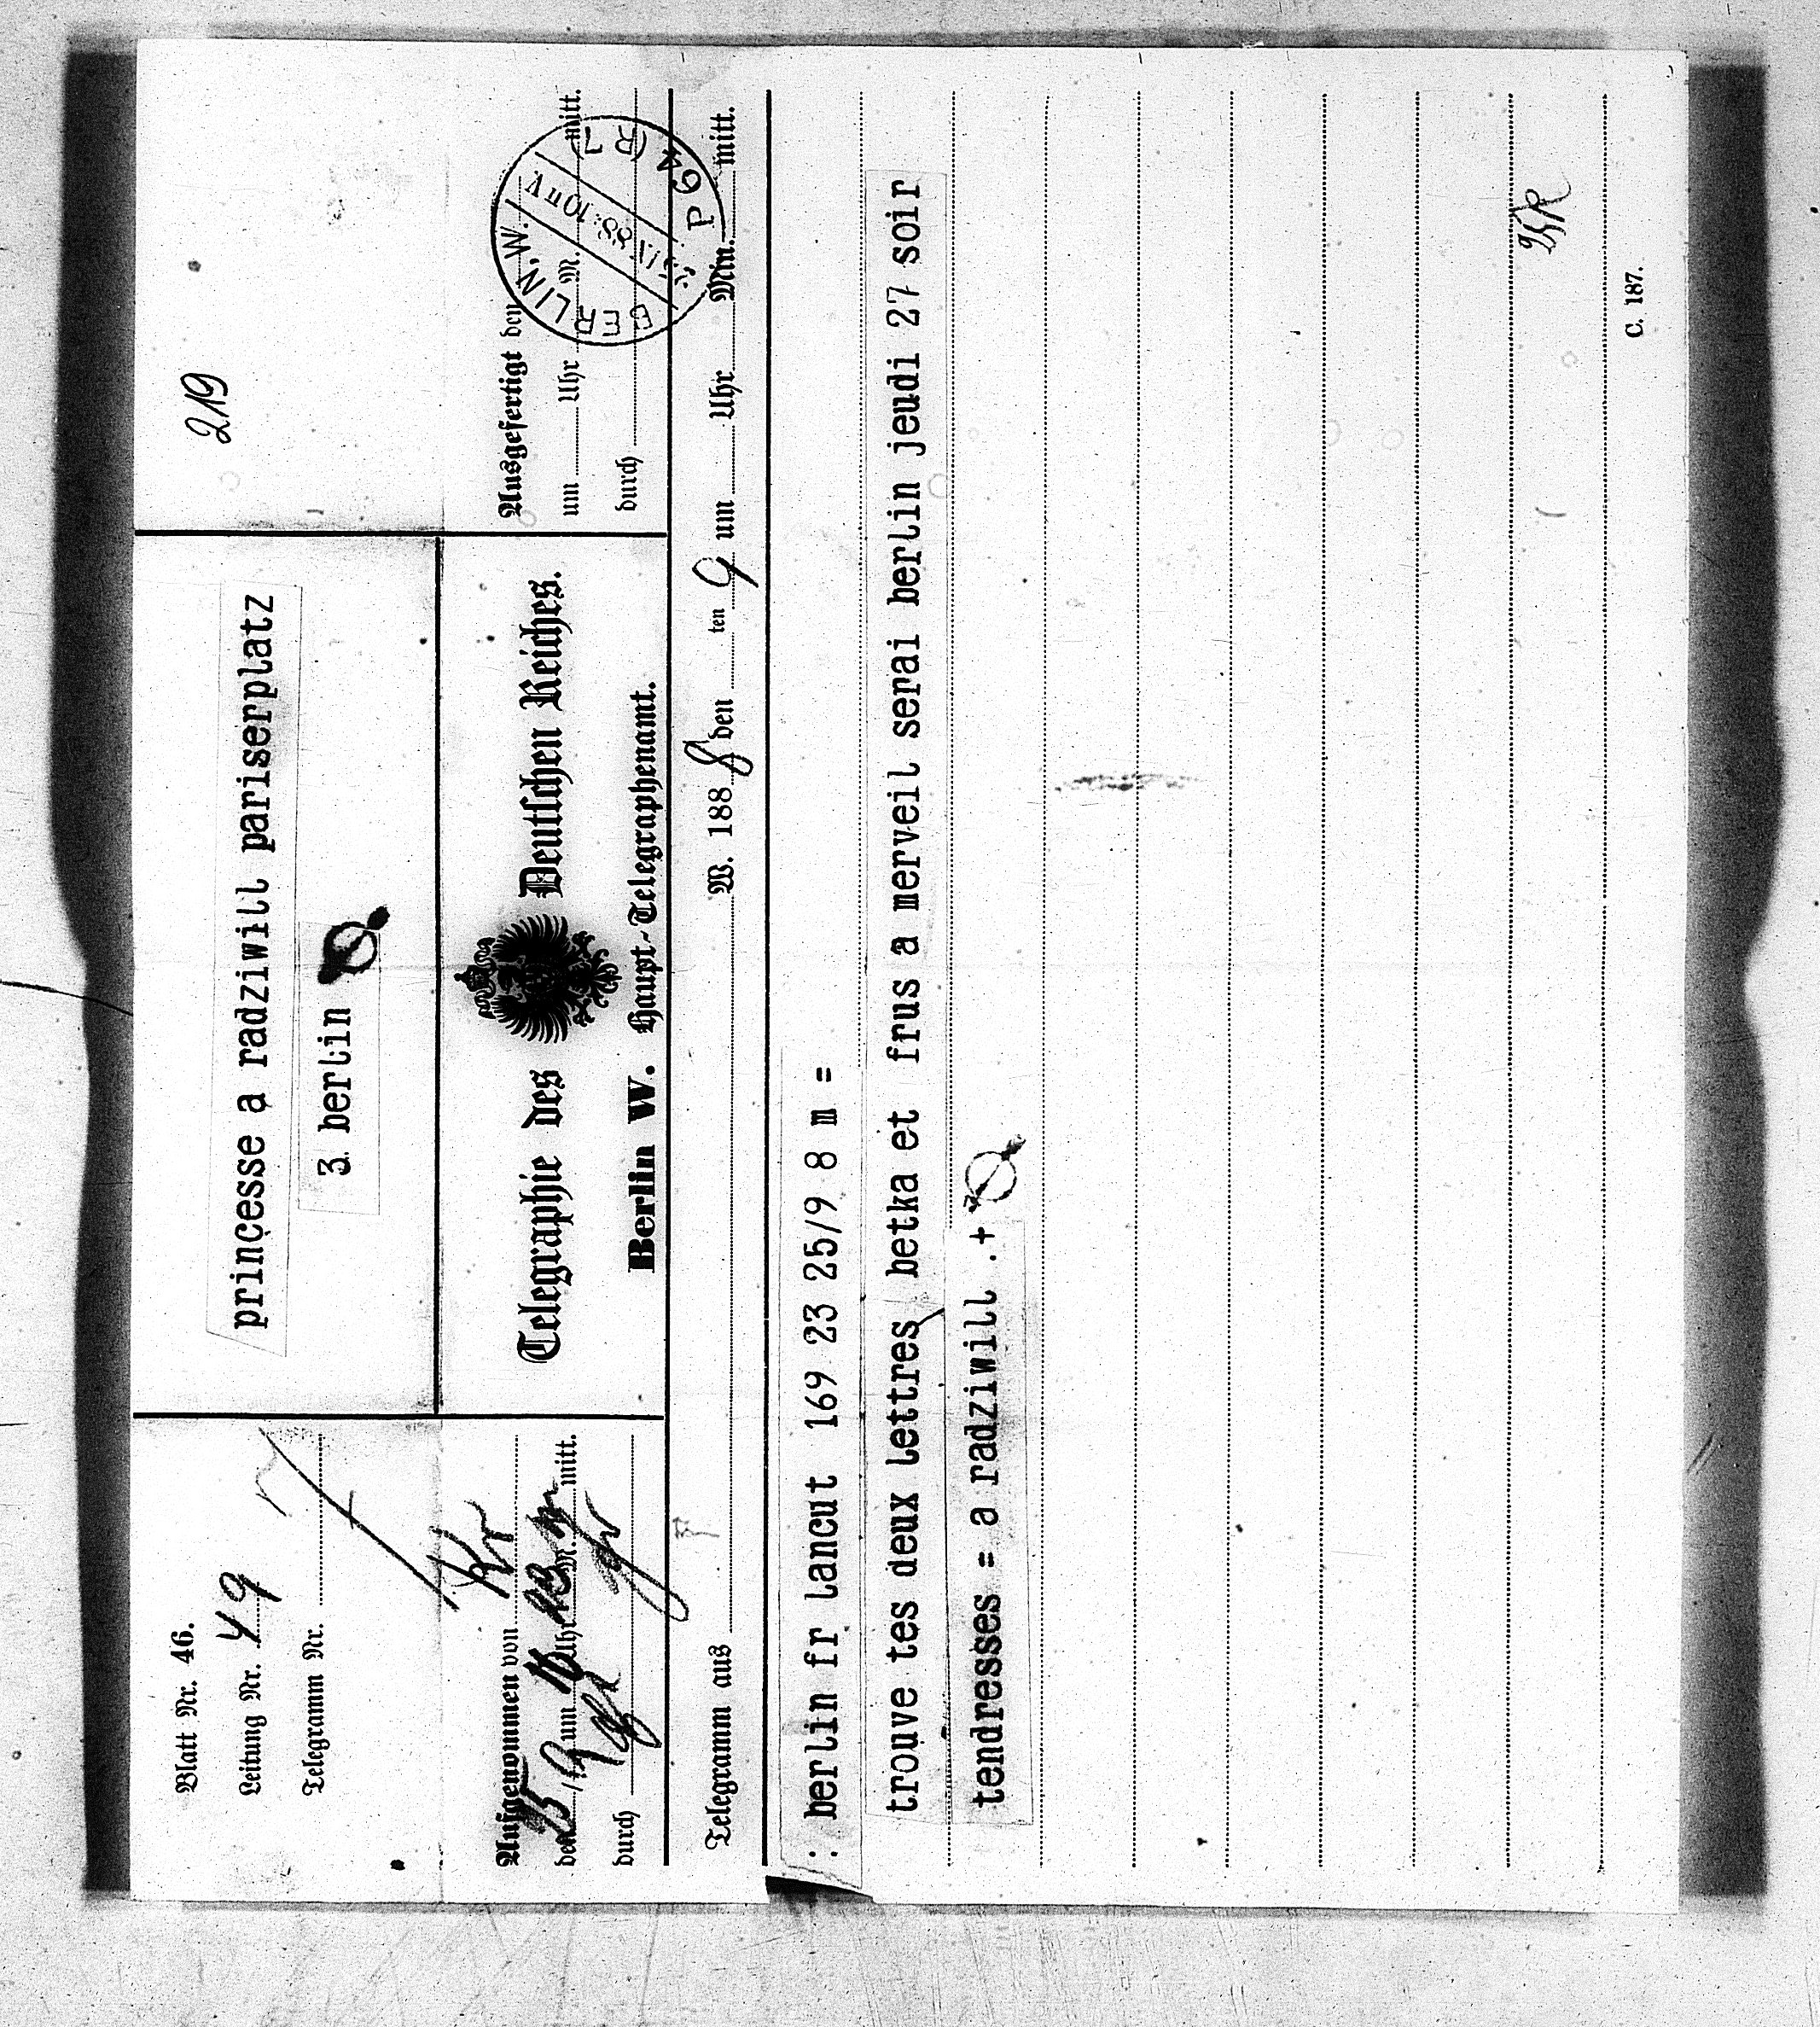 219
princesse a radziwill pariserplatz
3. berlin
Blatt Nr. 46.
Leitung Nr. 49
Telegramm Nr.
Telegraphie des Deutschen Reiches.
Berlin W. Haupt-Telegraphenamt.
Aufgenommen von Kr
den 25/9 um Uhr M. mitt.
durch
Ausgefertigt den
um Uhr M. mitt.
durch
BERLIN, W. P 64 (R 7)
Telegramm aus W. 188 8 den ten 9 um Uhr Min. mitt.
: berlin fr lancut 169 23 25/9 8 m =
trouve tes deux lettres betka et frus a merveil serai berlin jeudi 27 soir
tendresses = a radziwill .+
C. 187.